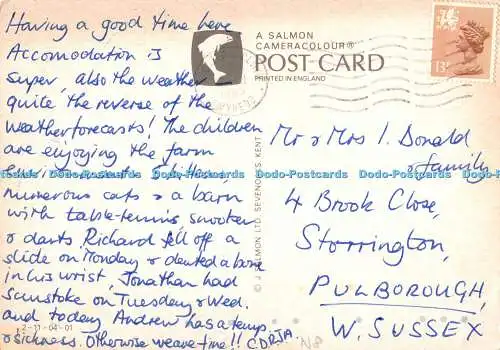 Having a good time here
Accomodation is
super, also the weather
quite the reverse of the
weather forecasts! The children
are enjoying the farm
numerous cats & a barn
with table-tennis snooker
& darts. Richard fell off a
slide on Monday & dented a bone
in his wrist, Jonathan had
sunstoke on Tuesday & Wed.
and today Andrew has a temp.
& sickness. Otherwise we are fine!! C.D.R.J.A.
2-11-04-01
A SALMON
CAMERACOLOUR®
POST CARD
PRINTED IN ENGLAND
© J SALMON LTD. SEVENOAKS, KENT
13P
Mr & Mrs I. Donald
& family
4 Brook Close,
Storrington,
PULBOROUGH,
W. SUSSEX
Dodo-Postcards Dodo-Postcards Dodo-Postcards Dodo-Postcards Dodo-Postcards